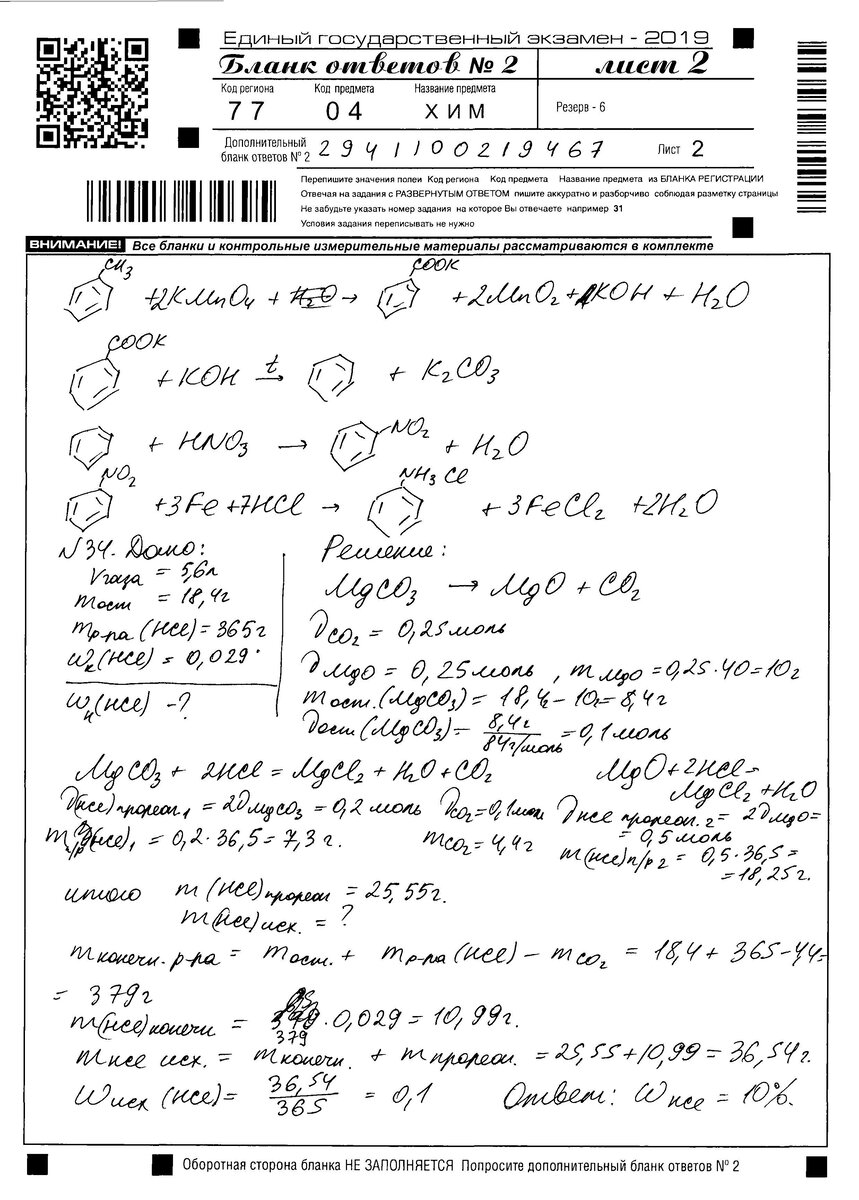 Единый государственный экзамен - 2019
Бланк ответов № 2
лист 2
Код региона Код предмета Название предмета
77 04 ХИМ
Резерв - 6
Дополнительный бланк ответов № 2 2941100219467 Лист 2
Перепишите значения полей Код региона Код предмета Название предмета из БЛАНКА РЕГИСТРАЦИИ
Отвечая на задания с РАЗВЕРНУТЫМ ОТВЕТОМ пишите аккуратно и разборчиво соблюдая разметку страницы
Не забудьте указать номер задания на которое Вы отвечаете например 31
Условия задания переписывать не нужно
ВНИМАНИЕ! Все бланки и контрольные измерительные материалы рассматриваются в комплекте
CH3 COOK
+2KMnO4 + H2O → +2MnO2 + KOH + H2O
COOK
+ KOH t → + K2CO3
+ HNO3 → NO2 + H2O
NO2 NH3Cl
+3Fe+7HCl → + 3FeCl2 +2H2O
N34. Дано: Решение:
Vгаза = 5,6л
MgCO3 → MgO + CO2
mост = 18,4г
mр-ра (HCl) = 365г
νCO2 = 0,25 моль
ωк(HCl) = 0,029
νMgO = 0,25 моль, mMgO = 0,25·40=10г
ωн(HCl) -?
mост.(MgCO3) = 18,4г – 10г = 8,4г
νост(MgCO3) = 8,4г / 84г/моль = 0,1 моль
MgCO3 + 2HCl = MgCl2 + H2O + CO2 MgO + 2HCl =
MgCl2 + H2O
ν(HCl)прореаг.1 = 2νMgCO3 = 0,2 моль νCO2=0,1моль νHCl прореаг.2 = 2νMgO =
= 0,5 моль
(HCl)1 = 0,2·36,5 = 7,3 г. mCO2 = 4,4г m(HCl)п/р2 = 0,5·36,5 =
= 18,25г.
итого m (HCl)прореаг = 25,55г.
m(HCl)исх. = ?
mконечн. р-ра = mост. + mр-ра (HCl) – mCO2 = 18,4 + 365 – 4,4 =
= 379г
m(HCl)конечн = 379 · 0,029 = 10,99г.
mHCl исх. = mконечн. + mпрореаг. = 25,55 + 10,99 = 36,54г.
ωисх (HCl) = 36,54 / 365 = 0,1 Ответ: ωHCl = 10%.
Оборотная сторона бланка НЕ ЗАПОЛНЯЕТСЯ Попросите дополнительный бланк ответов № 2